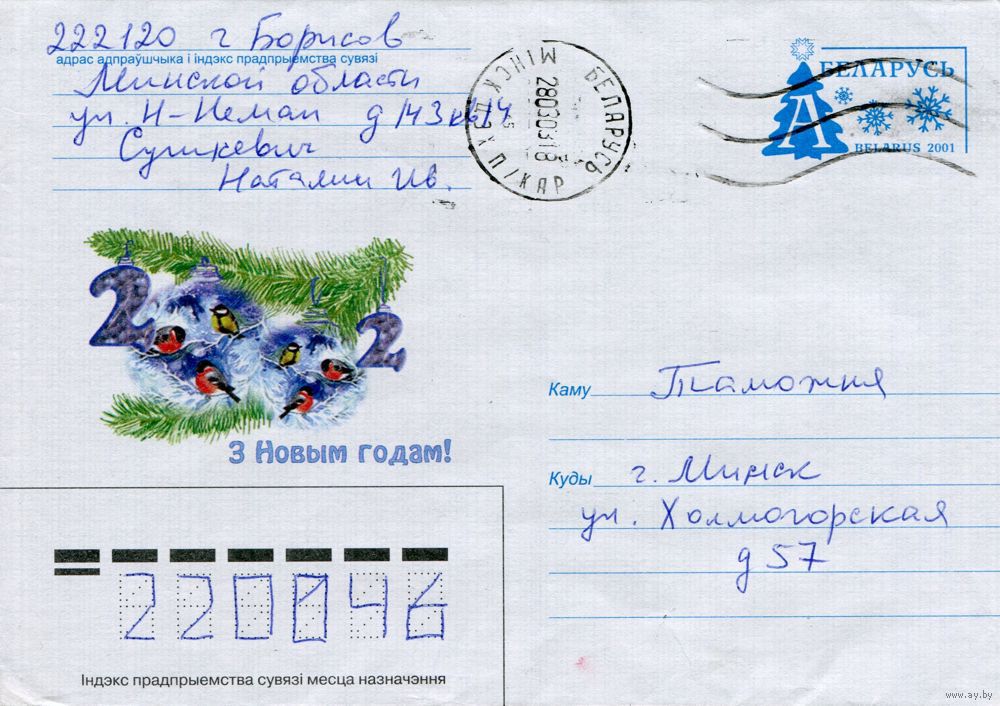 222120 г Борисов
адрас адпраўшчыка і індэкс прадпрыемства сувязі
Минской области
ул. Н-Неман д 143 кв 14
Сушкевич
Наталии Ив.
БЕЛАРУСЬ
МІНСК
280303 18
П/КАР
БЕЛАРУСЬ
A
BELARUS 2001
2 2
З Новым годам!
Каму Таможня
Куды г. Минск
ул. Холмогорская
д 57
220046
Індэкс прадпрыемства сувязі месца назначэння
www.ay.by